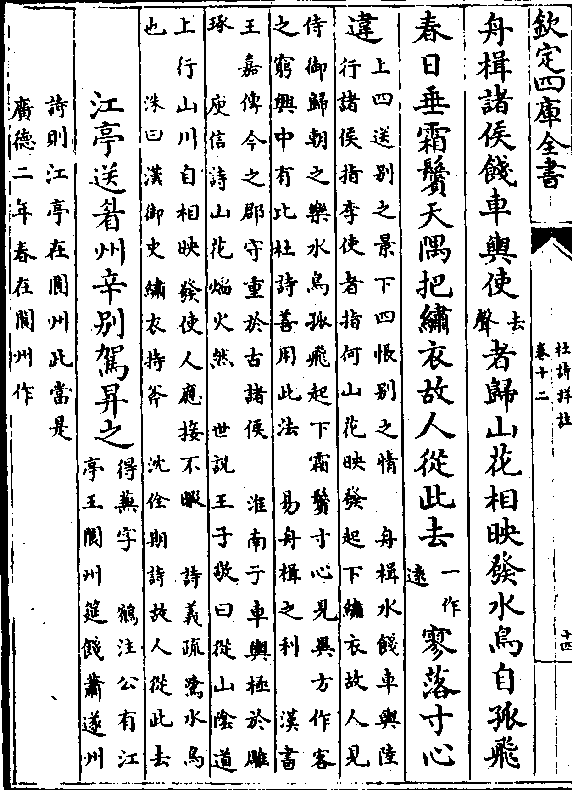 欽定四庫全書
杜詩詳註
卷十二
十四
舟楫諸侯餞車輿使
去
聲
者歸山花相映發水鳥自孤飛
春日垂霜鬢天隅把繡衣故人從此去
一作
遠
寥落寸心
違
上四送别之景下四悵别之情 舟楫水餞車輿陸
行諸侯指李使者指何山花映發起下繡衣故人見
侍御歸朝之樂水鳥孤飛起下霜鬢寸心見異方作客
之窮興中有比杜詩善用此法 易舟楫之利 漢書
王嘉傳今之郡守重於古諸侯 淮南子車輿極於雕
琢 庾信詩山花熖火然 世說王子敬曰從山陰道
上行山川自相映發使人應接不暇 詩義疏鷺水鳥
也 洙曰漢御史繡衣持斧 沈佺期詩故人從此去
江亭送眉州辛别駕昇之
得蕪字 鶴注公有江
亭王閬州筵餞蕭遂州
詩則江亭在閬州此當是
廣德二年春在閬州作